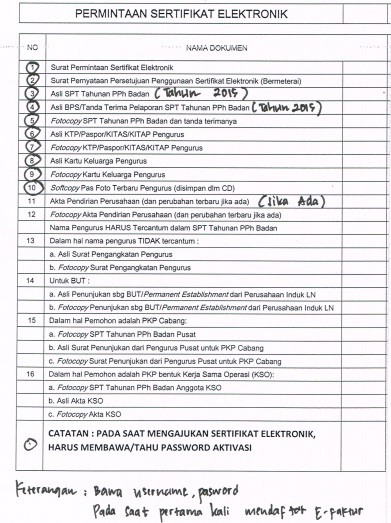 PERMINTAAN SERTIFIKAT ELEKTRONIK
NO NAMA DOKUMEN
1 Surat Permintaan Sertifikat Elektronik
2 Surat Pernyataan Persetujuan Penggunaan Sertifikat Elektronik (Bermeterai)
3 Asli SPT Tahunan PPh Badan (Tahun 2015)
4 Asli BPS/Tanda Terima Pelaporan SPT Tahunan PPh Badan (Tahun 2015)
5 Fotocopy SPT Tahunan PPh Badan dan tanda terimanya
6 Asli KTP/Paspor/KITAS/KITAP Pengurus
7 Fotocopy KTP/Paspor/KITAS/KITAP Pengurus
8 Asli Kartu Keluarga Pengurus
9 Fotocopy Kartu Keluarga Pengurus
10 Softcopy Pas Foto Terbaru Pengurus (disimpan dlm CD)
11 Akta Pendirian Perusahaan (dan perubahan terbaru jika ada) (Jika Ada)
12 Fotocopy Akta Pendirian Perusahaan (dan perubahan terbaru jika ada)
Nama Pengurus HARUS Tercantum dalam SPT Tahunan PPh Badan
13 Dalam hal nama pengurus TIDAK tercantum :
a. Asli Surat Pengangkatan Pengurus
b. Fotocopy Surat Pengangkatan Pengurus
14 Untuk BUT :
a. Asli Penunjukan sbg BUT/Permanent Establishment dari Perusahaan Induk LN
b. Fotocopy Penunjukan sbg BUT/Permanent Establishment dari Perusahaan Induk LN
15 Dalam hal Pemohon adalah PKP Cabang:
a. Fotocopy SPT Tahunan PPh Badan Pusat
b. Asli Surat Penunjukan dari Pengurus Pusat untuk PKP Cabang
c. Fotocopy Surat Penunjukan dari Pengurus Pusat untuk PKP Cabang
16 Dalam hal Pemohon adalah PKP bentuk Kerja Sama Operasi (KSO):
a. Fotocopy SPT Tahunan PPh Badan Anggota KSO
b. Asli Akta KSO
c. Fotocopy Akta KSO
CATATAN : PADA SAAT MENGAJUKAN SERTIFIKAT ELEKTRONIK,
HARUS MEMBAWA/TAHU PASSWORD AKTIVASI
Keterangan : Bawa username, pasword
Pada saat pertama kali mendaftar E-faktur